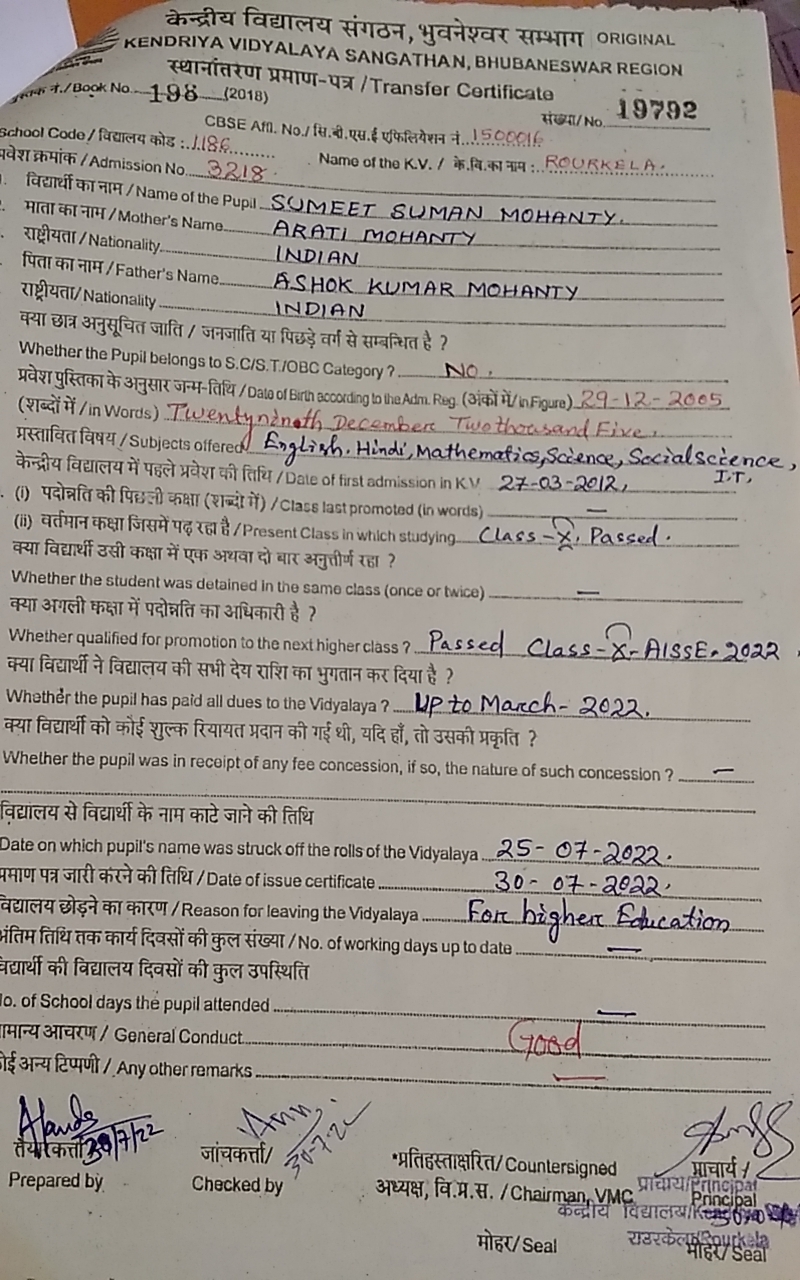 केन्द्रीय विद्यालय संगठन, भुवनेश्वर सम्भाग ORIGINAL
KENDRIYA VIDYALAYA SANGATHAN, BHUBANESWAR REGION
स्थानांतरण प्रमाण-पत्र / Transfer Certificate
नं./Book No. 198 (2018) संख्या/No. 19792
CBSE Affl. No./ सि.बी.एस.ई एफिलियेशन नं. 1500016
School Code / विद्यालय कोड : 1186
प्रवेश क्रमांक / Admission No. 3218 Name of the K.V. / के.वि.का नाम : ROURKELA.
विद्यार्थी का नाम / Name of the Pupil SUMEET SUMAN MOHANTY.
माता का नाम / Mother's Name ARATI MOHANTY
राष्ट्रीयता / Nationality INDIAN
पिता का नाम / Father's Name ASHOK KUMAR MOHANTY
राष्ट्रीयता/ Nationality INDIAN
क्या छात्र अनुसूचित जाति / जनजाति या पिछड़े वर्ग से सम्बन्धित है ?
Whether the Pupil belongs to S.C/S.T./OBC Category ? NO.
प्रवेश पुस्तिका के अनुसार जन्म-तिथि / Date of Birth according to the Adm. Reg. (अंकों में/ in Figure) 29-12-2005
(शब्दों में / in Words) Twentynineth December Two thousand Five.
प्रस्तावित विषय / Subjects offered English, Hindi, Mathematics, Science, Social science, I.T,
केन्द्रीय विद्यालय में पहले प्रवेश की तिथि / Date of first admission in K.V 27-03-2012,
(i) पदोन्नति की पिछली कक्षा (शब्दों में) / Class last promoted (in words) —
(ii) वर्तमान कक्षा जिसमें पढ़ रहा है / Present Class in which studying Class-X, Passed.
क्या विद्यार्थी उसी कक्षा में एक अथवा दो बार अनुत्तीर्ण रहा ?
Whether the student was detained in the same class (once or twice) —
क्या अगली कक्षा में पदोन्नति का अधिकारी है ?
Whether qualified for promotion to the next higher class ? Passed Class-X-AISSE-2022
क्या विद्यार्थी ने विद्यालय की सभी देय राशि का भुगतान कर दिया है ?
Whether the pupil has paid all dues to the Vidyalaya ? UP to March-2022.
क्या विद्यार्थी को कोई शुल्क रियायत प्रदान की गई थी, यदि हाँ, तो उसकी प्रकृति ?
Whether the pupil was in receipt of any fee concession, if so, the nature of such concession ? —
विद्यालय से विद्यार्थी के नाम काटे जाने की तिथि
Date on which pupil's name was struck off the rolls of the Vidyalaya 25-07-2022.
प्रमाण पत्र जारी करने की तिथि / Date of issue certificate 30-07-2022.
विद्यालय छोड़ने का कारण / Reason for leaving the Vidyalaya For higher Education
अंतिम तिथि तक कार्य दिवसों की कुल संख्या / No. of working days up to date —
विद्यार्थी की विद्यालय दिवसों की कुल उपस्थिति
No. of School days the pupil attended —
सामान्य आचरण / General Conduct Good
कोई अन्य टिप्पणी / Any other remarks —
30/7/22 30-7-22
तैयारकर्त्ता जांचकर्त्ता/ *प्रतिहस्ताक्षरित/ Countersigned प्राचार्य /
Prepared by Checked by अध्यक्ष, वि.प्र.स. / Chairman, VMC Principal
प्राचार्य/Principal
केन्द्रीय विद्यालय
राउरकेला/Rourkela
मोहर/ Seal मोहर/ Seal